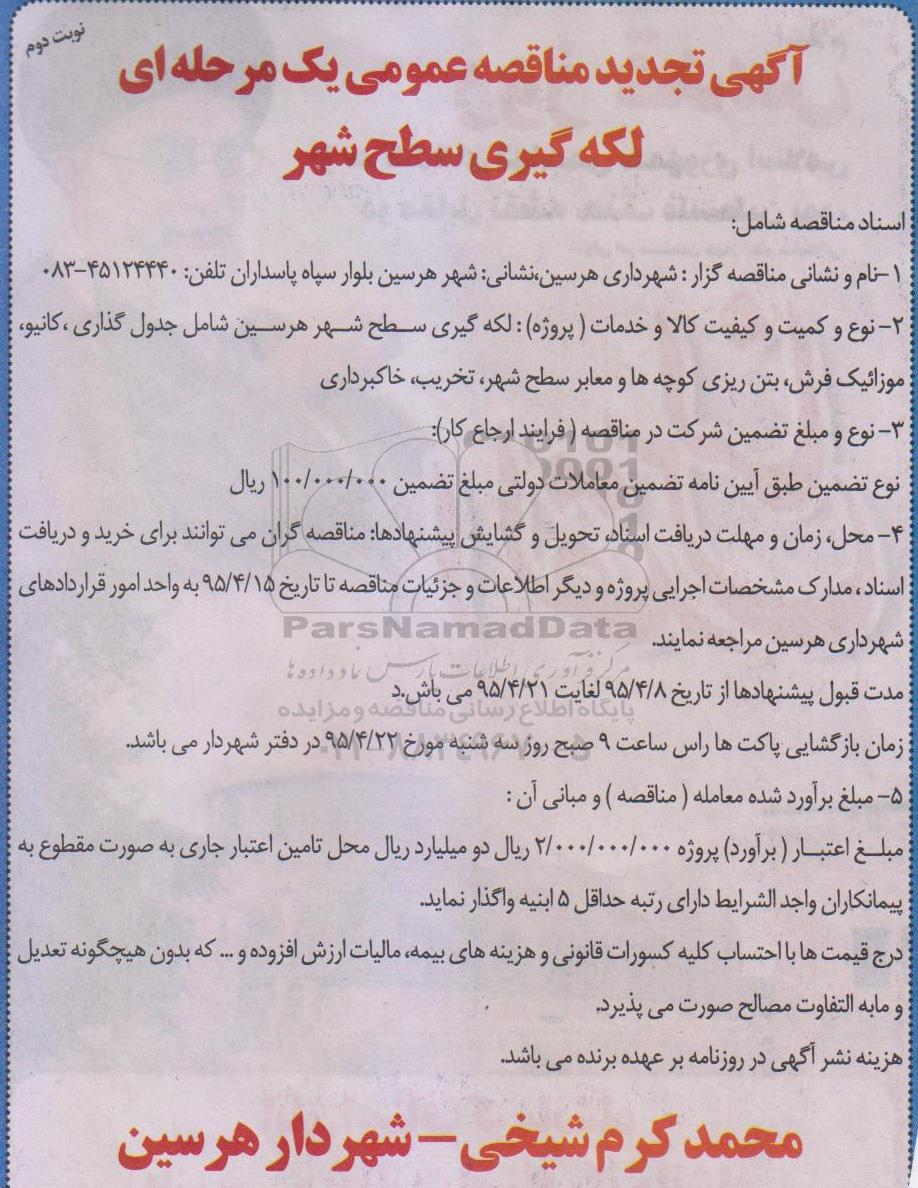 نوبت دوم
آگهی تجدید مناقصه عمومی یک مرحله ای
لکه گیری سطح شهر
اسناد مناقصه شامل:
۱-نام و نشانی مناقصه گزار : شهرداری هرسین،نشانی: شهر هرسین بلوار سپاه پاسداران تلفن: ۴۵۱۲۴۴۴۰-۰۸۳
۲- نوع و کمیت و کیفیت کالا و خدمات ( پروژه) : لکه گیری سطح شهر هرسین شامل جدول گذاری ،کانیو،
موزائیک فرش، بتن ریزی کوچه ها و معابر سطح شهر، تخریب، خاکبرداری
۳- نوع و مبلغ تضمین شرکت در مناقصه ( فرایند ارجاع کار):
نوع تضمین طبق آیین نامه تضمین معاملات دولتی مبلغ تضمین ۱۰۰/۰۰۰/۰۰۰ ریال
۴- محل، زمان و مهلت دریافت اسناد، تحویل و گشایش پیشنهادها: مناقصه گران می توانند برای خرید و دریافت
اسناد ، مدارک مشخصات اجرایی پروژه و دیگر اطلاعات و جزئیات مناقصه تا تاریخ ۹۵/۴/۱۵ به واحد امور قراردادهای
ParsNamadData
شهرداری هرسین مراجعه نمایند.
مرکز فرآوری اطلاعات پارس نماد داده ها
مدت قبول پیشنهادها از تاریخ ۹۵/۴/۸ لغایت ۹۵/۴/۲۱ می باش.د
پایگاه اطلاع رسانی مناقصه و مزایده
زمان بازگشایی پاکت ها راس ساعت ۹ صبح روز سه شنبه مورخ ۹۵/۴/۲۲ در دفتر شهردار می باشد.
۵- مبلغ برآورد شده معامله ( مناقصه ) و مبانی آن :
مبلغ اعتبار ( برآورد) پروژه ۲/۰۰۰/۰۰۰/۰۰۰ ریال دو میلیارد ریال محل تامین اعتبار جاری به صورت مقطوع به
پیمانکاران واجد الشرایط دارای رتبه حداقل ۵ ابنیه واگذار نماید.
درج قیمت ها با احتساب کلیه کسورات قانونی و هزینه های بیمه، مالیات ارزش افزوده و ... که بدون هیچگونه تعدیل
و مابه التفاوت مصالح صورت می پذیرد.
هزینه نشر آگهی در روزنامه بر عهده برنده می باشد.
محمد کرم شیخی - شهردار هرسین